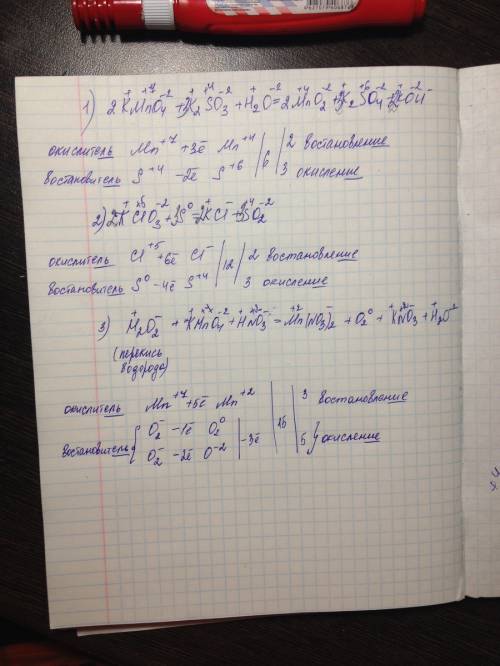 1) 2KMnO4 + 3K2SO3 + H2O = 2MnO2 + 3K2SO4 + 2KOH
окислитель Mn+7 +3ē Mn+4 | 6 | 2 востановление
востановитель S+4 -2ē S+6 | | 3 окисление
2) 2KClO3 + 3S0 = 2KCl- + 3SO2
окислитель Cl+5 +6ē Cl- | 12 | 2 востановление
востановитель S0 -4ē S+4 | | 3 окисление
3) H2O2 + KMnO4 + HNO3 = Mn(NO3)2 + O20 + KNO3 + H2O
(перекись
водорода)
окислитель Mn+7 +5ē Mn+2 | 15 | 3 востановление
O2- -1ē O20
востановитель { -3ē | 5 } окисление
O2- -2ē O-2